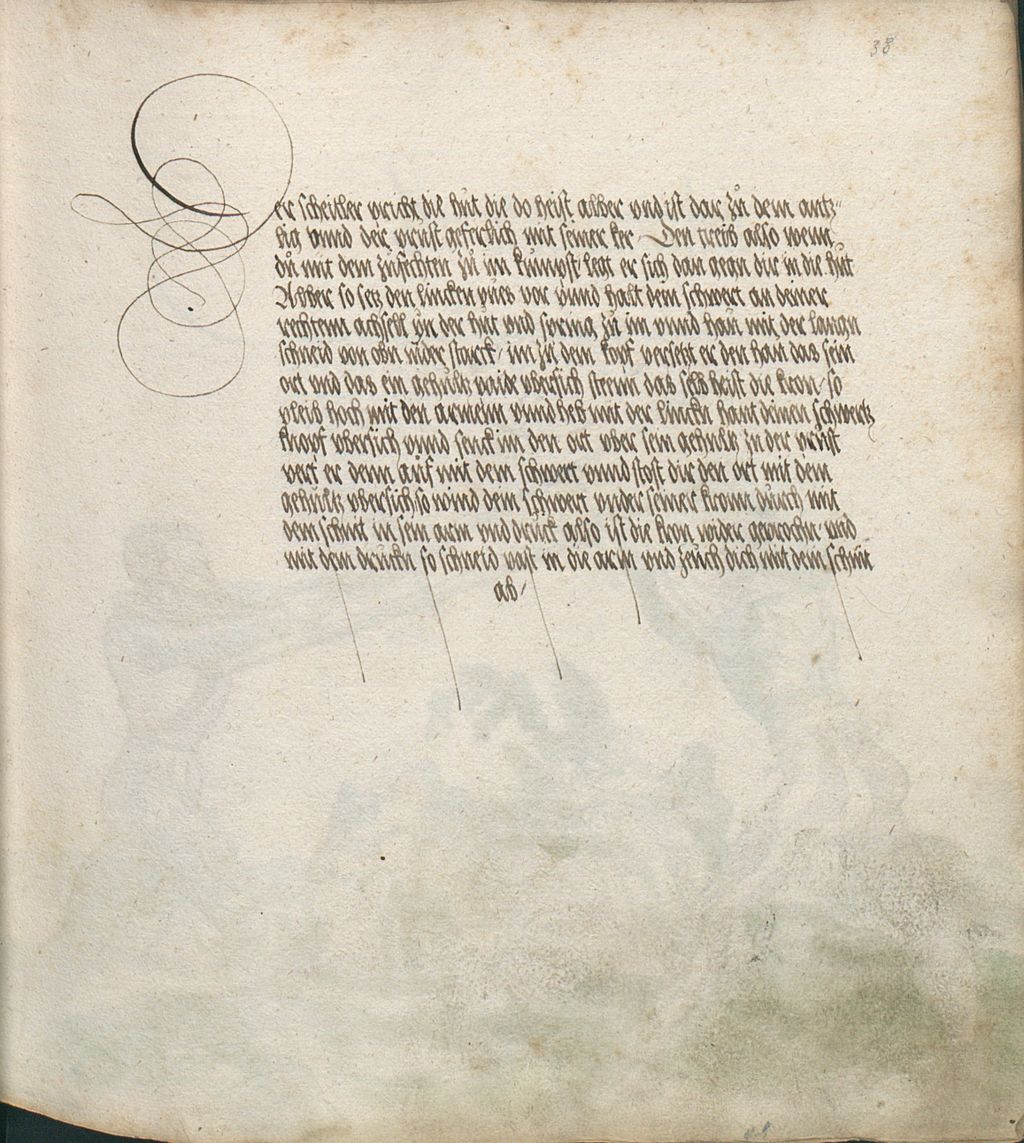 38
Der scheitler pricht die hut die do heist alber vnd ist dar zů dem antz-
lig vnnd der prust geferlich mit seiner ker Den treib also wenn
dů mit dem zůfechten zů im kumpst legt er sich dan gegn dir in die hůt
Alber so setz den lincken pues vor vnnd halt dein schwert an deiner
rechtenn achsell yn der hut vnd spring zů im vnnd hau mit der langn
schneid von obn nider starck im zů dem kopf versetzt er den hau das sein
ort vnd das ein gehultz paide vbersich steenn das selb heist die kron so
pleib hoch mit den armenn vnnd heb mit der linckn hant deinen schwertz
knopf vbersich vnnd senck im den ort vber sein gehultz zu der prust
vert er denn auf mit dem schwert vnnd stost dir den ort mit dem
gehultz vbersich so wind dein schwert vnder seiner kronn durch mit
dem schnit in sein arm vnd druck also ist die kron wider geprochn vnd
mit dem druckn so schneid vast in die arm vnd zeuch dich mit dem schnit
ab